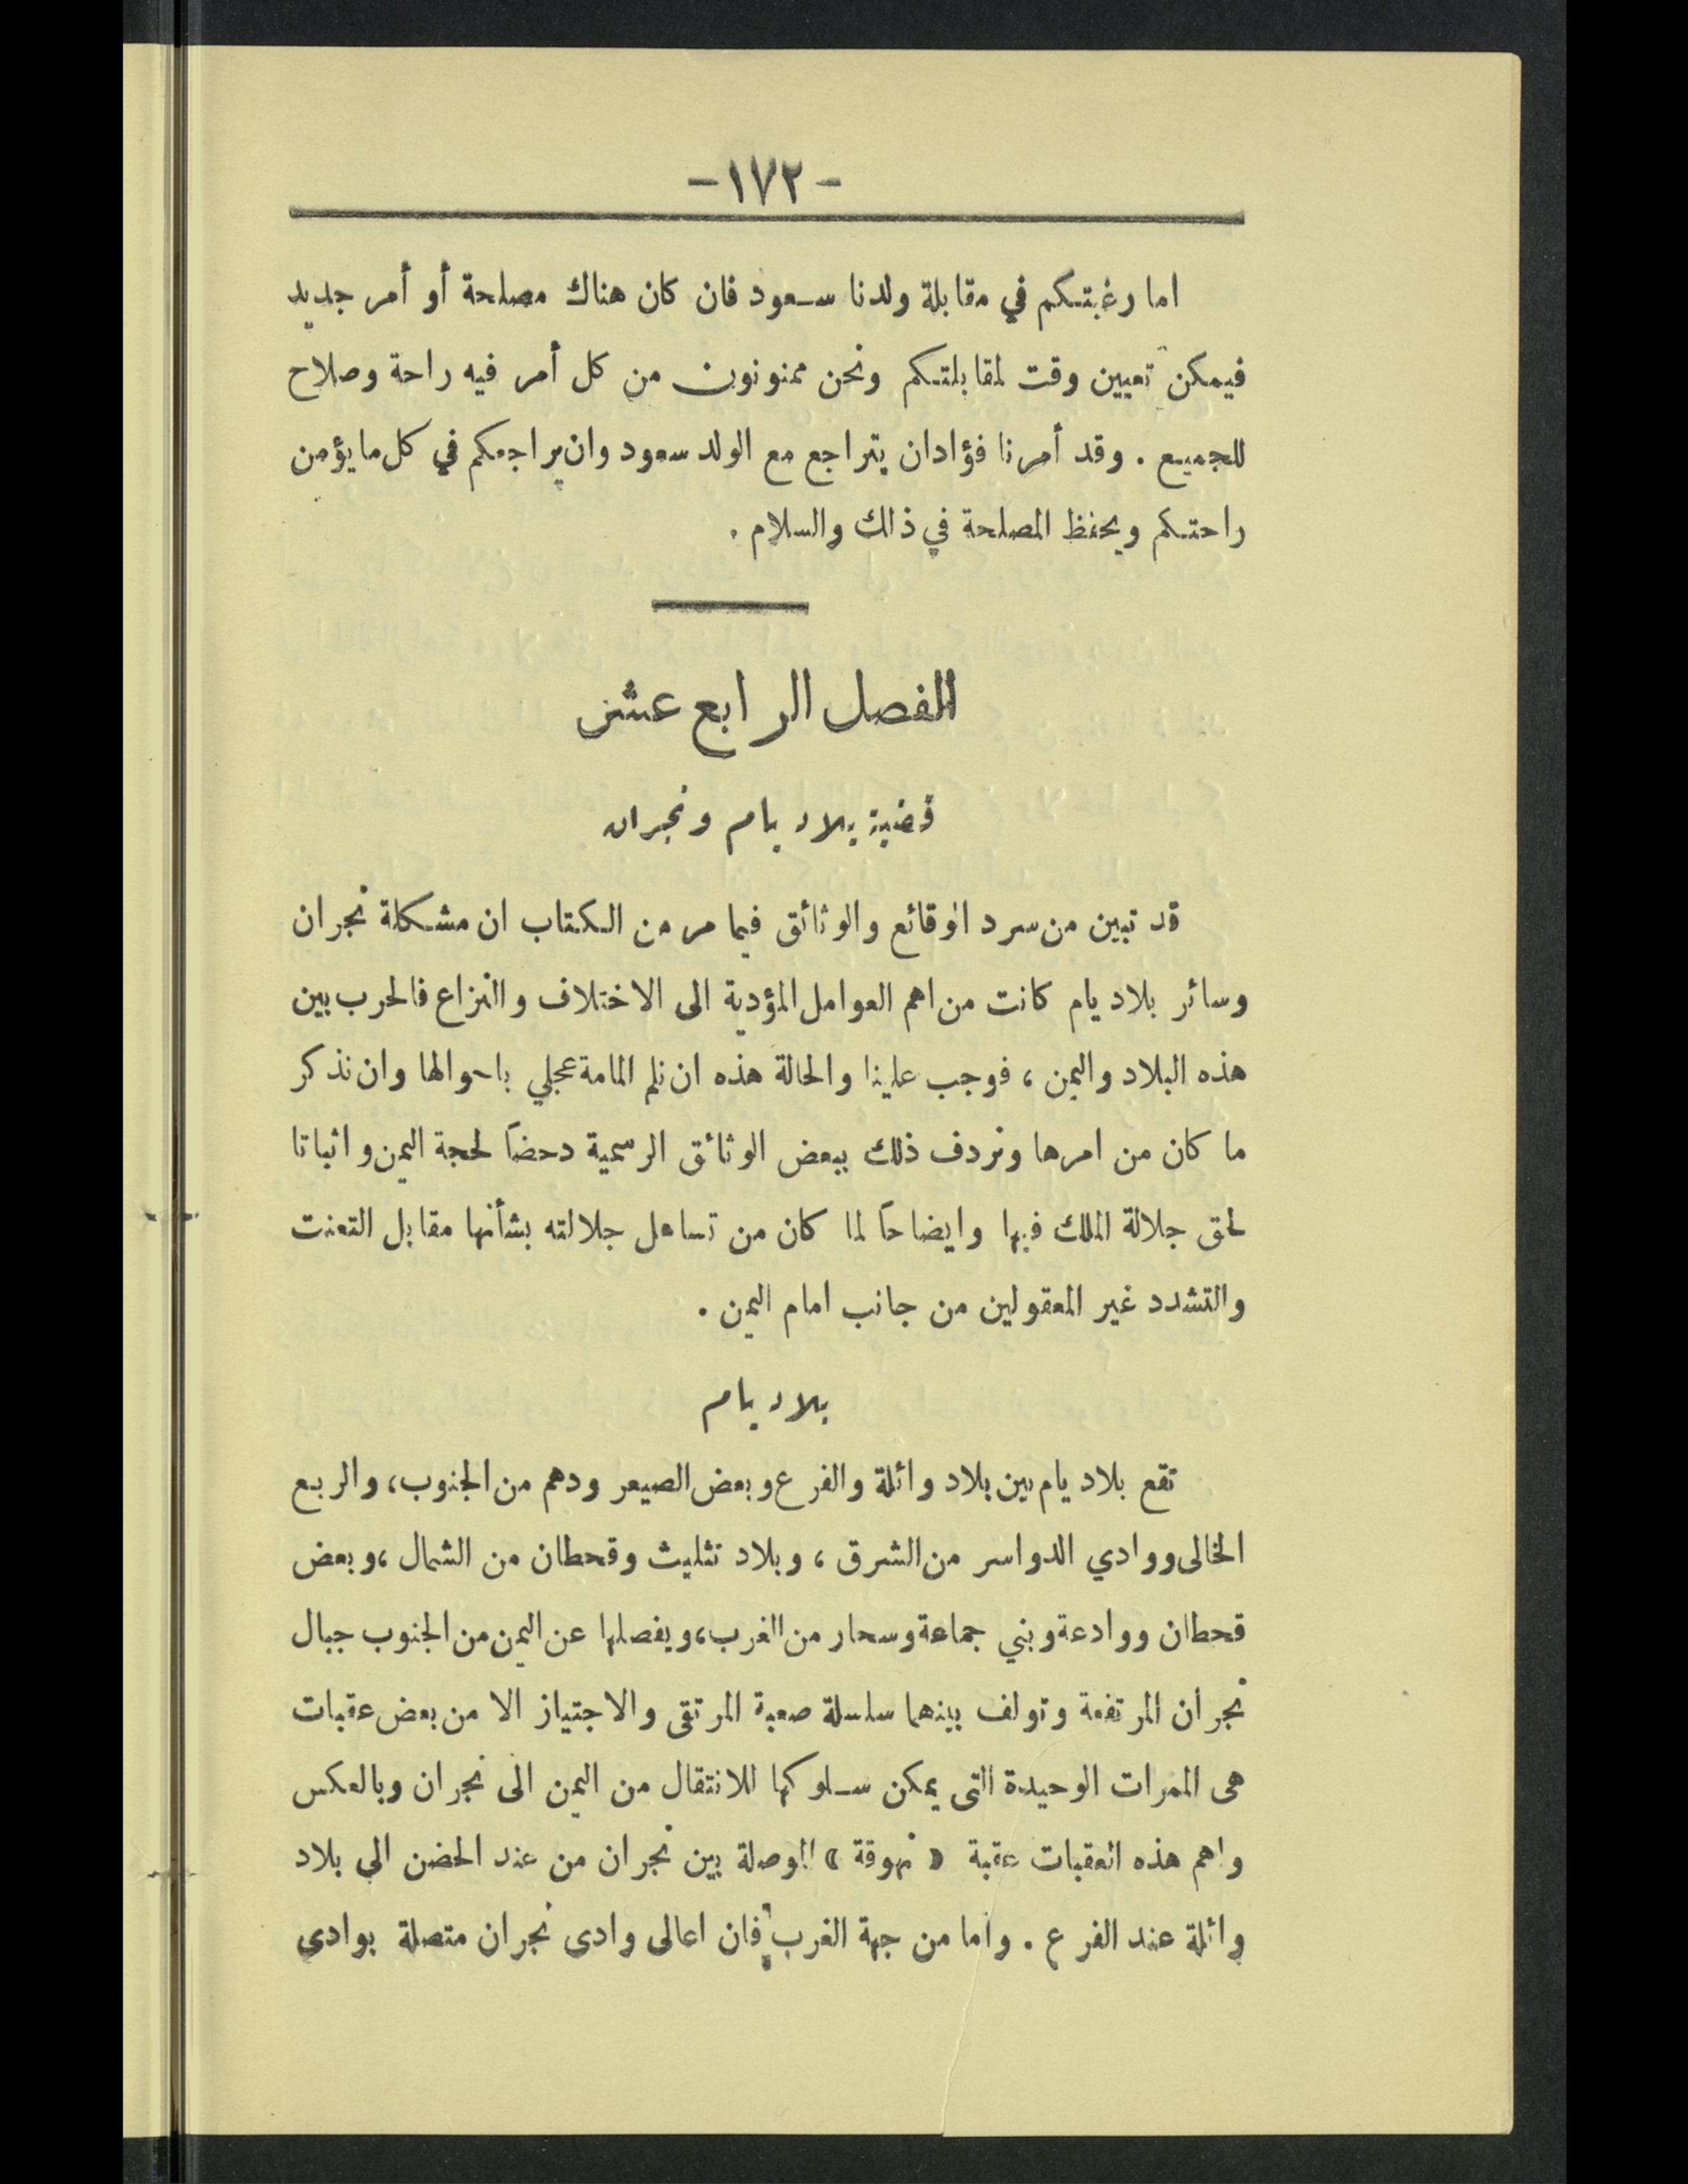 -١٧٢-
اما رغبتكم في مقابلة ولدنا سعود فان كان هناك مصلحة أو أمر جديد
فيمكن تعيين وقت لمقابلتكم ونحن ممنونون من كل أمر فيه راحة وصلاح
للجميع . وقد أمرنا فؤادان يتراجع مع الولد سعود وان يراجعكم في كل ما يؤمن
راحتكم ويحفظ المصلحة في ذلك والسلام .
الفصل الرابع عشر
قضية بلاد يام ونجران
قد تبين من سرد الوقائع والوثائق فيما مر من الكتاب ان مشكلة نجران
وسائر بلاد يام كانت من اهم العوامل المؤدية الى الاختلاف والنزاع فالحرب بين
هذه البلاد واليمن ، فوجب علينا والحالة هذه ان نلم المامة عجلي باحوالها وان نذكر
ما كان من امرها ونردف ذلك ببعض الوثائق الرسمية دحضاً لحجة اليمن واثباتا
لحق جلالة الملك فيها وايضاحاً لما كان من تساهل جلالته بشأنها مقابل التعنت
والتشدد غير المعقولين من جانب امام اليمن .
بلاد يام
تقع بلاد يام بين بلاد وائلة والفرع وبعض الصيعر ودهم من الجنوب، والربع
الخالى ووادي الدواسر من الشرق ، وبلاد تثليث وقحطان من الشمال ، وبعض
قحطان ووادعة وبني جماعة وسحار من الغرب، ويفصلها عن اليمن من الجنوب جبال
نجران المرتفعة وتولف بينهما سلسلة صعبة المرتقى والاجتياز الا من بعض عقبات
هى الممرات الوحيدة التى يمكن سلوكها للانتقال من اليمن الى نجران وبالعكس
واهم هذه العقبات عقبة « نهوقة » الموصلة بين نجران من عند الحضن الي بلاد
وائلة عند الفرع . واما من جهة الغرب فان اعالى وادى نجران متصلة بوادى